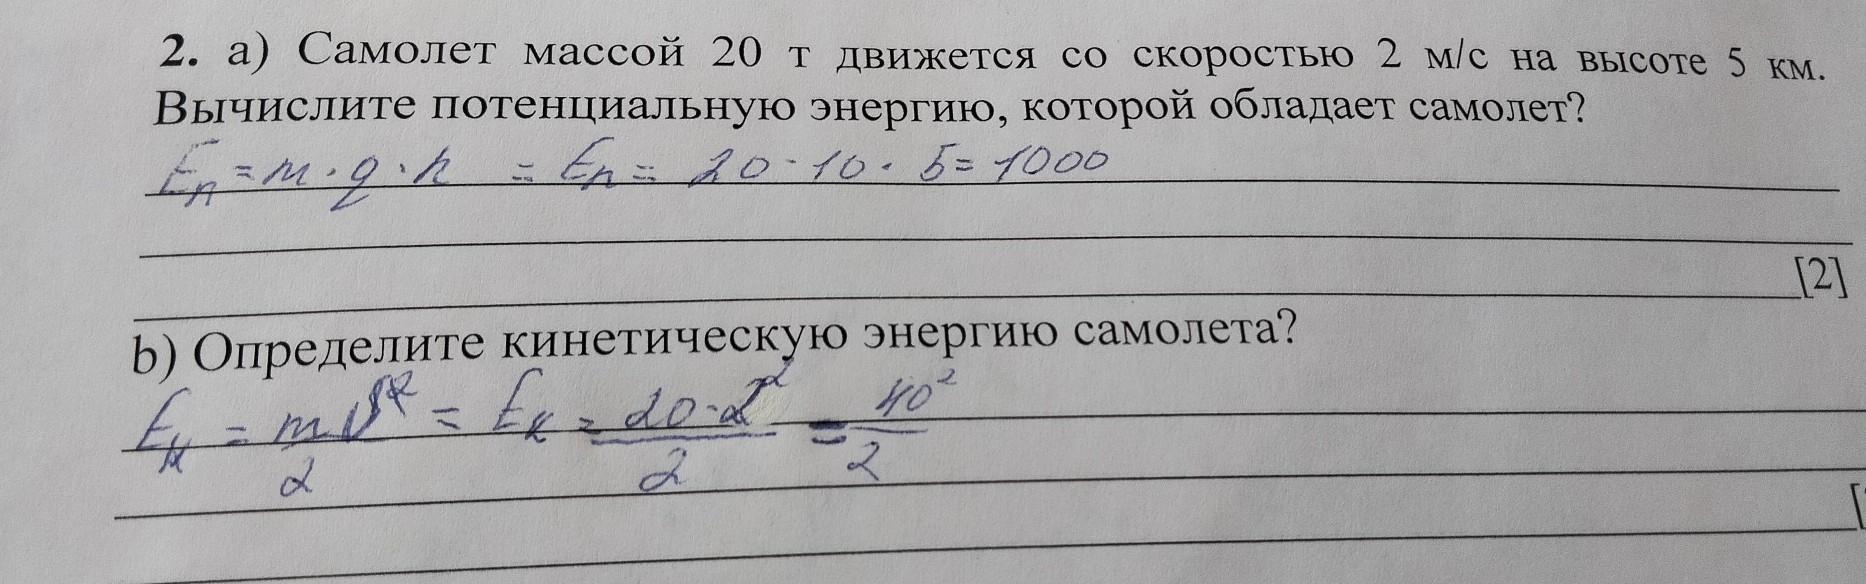 2. a) Самолет массой 20 т движется со скоростью 2 м/с на высоте 5 км.
Вычислите потенциальную энергию, которой обладает самолет?
Eп = m · g · h = Eп = 20 · 10 · 5 = 1000
[2]
b) Определите кинетическую энергию самолета?
Eк = mv²/2 = Eк = 20·2²/2 = 40²/2
[